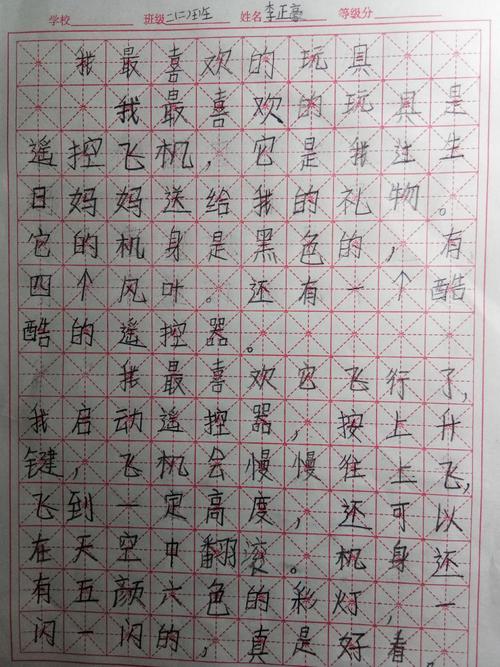 学校 班级 二(二)班 姓名 李正豪 等级分
我最喜欢的玩具
我最喜欢的玩具是
遥控飞机，它是我过生
日妈妈送给我的礼物。
它的机身是黑色的，有
四个风叶。还有一个酷
酷的遥控器。
我最喜欢它飞行了，
我启动遥控器，按上升
键，飞机会慢慢往上飞，
飞到一定高度，还可以
在天空中翻滚。机身还
有五颜六色的彩灯，一
闪一闪的，真是好看